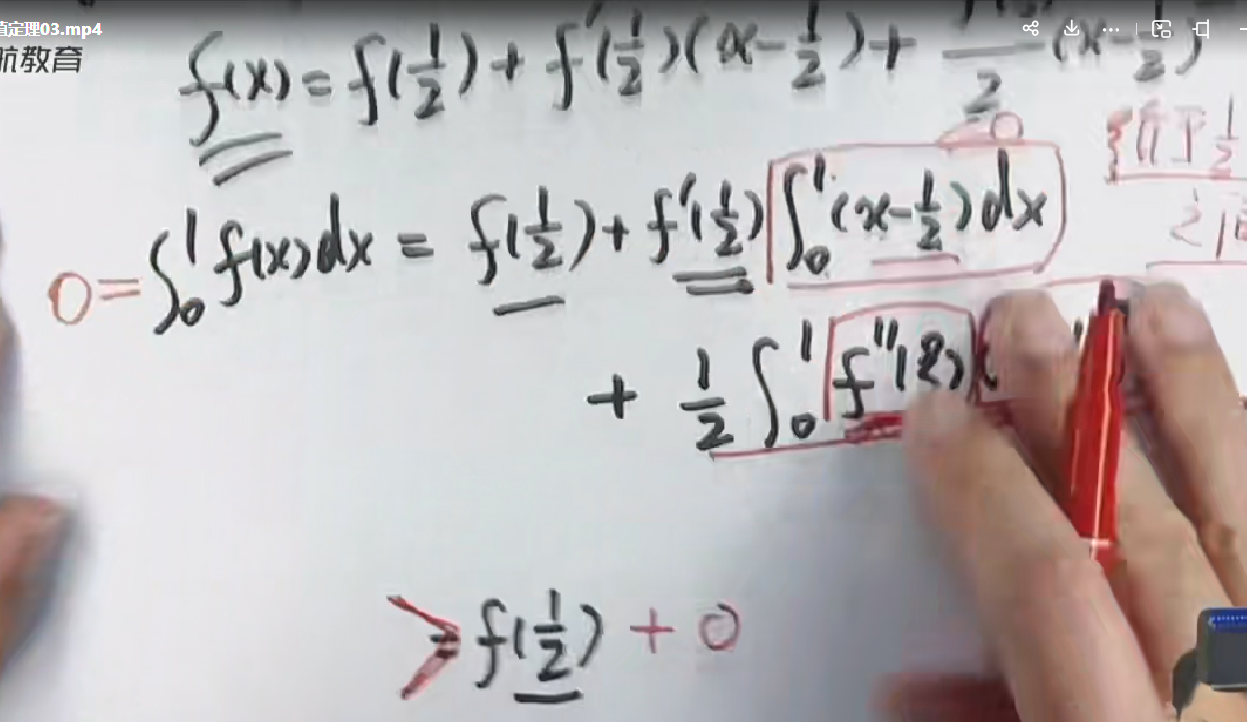 值定理03.mp4
航教育
f(x) = f(1/2) + f'(1/2)(x - 1/2) + /2 (x - 1/2)
开 1/2
0 = ∫₀¹ f(x)dx = f(1/2) + f'(1/2) ∫₀¹ (x - 1/2) dx 0
+ 1/2 ∫₀¹ f''(ξ)(
> f(1/2) + 0